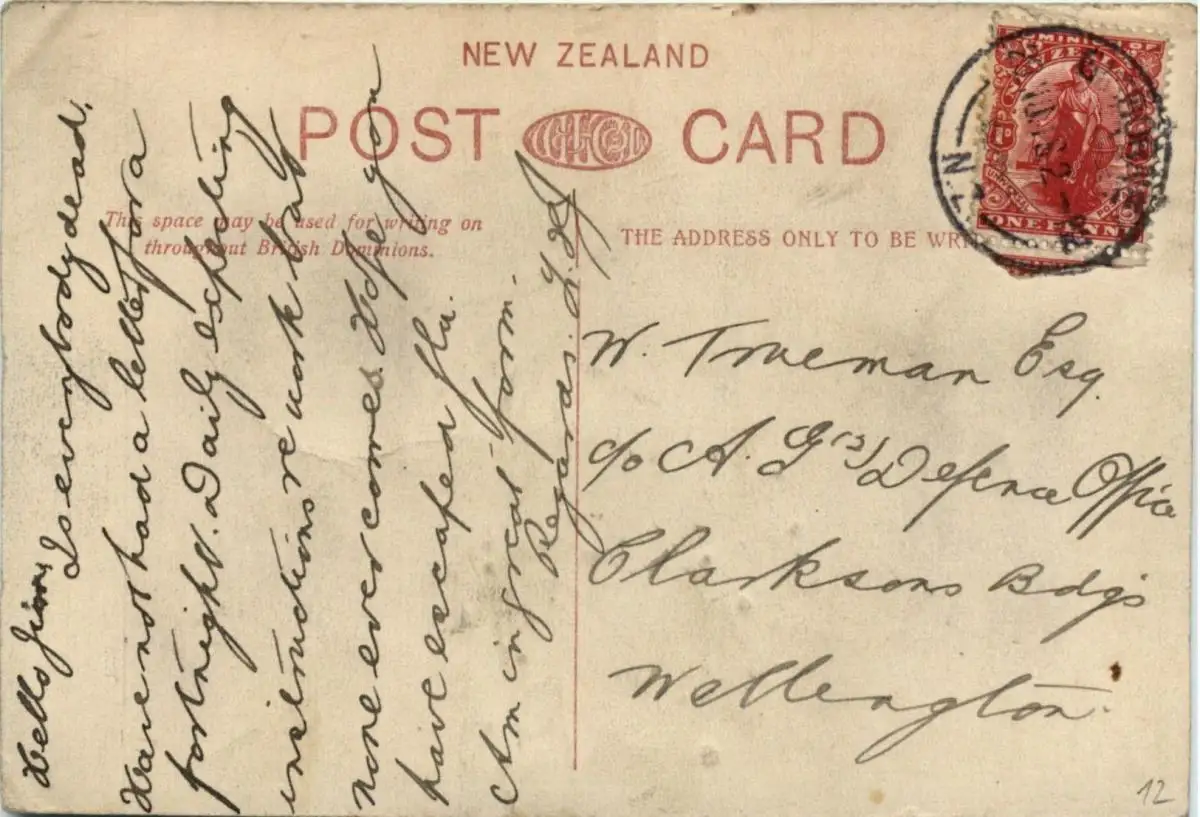 NEW ZEALAND
POST CARD
This space may be used for writing on
throughout British Dominions.
THE ADDRESS ONLY TO BE
DOMINION OF
NEW ZEALAND
POSTAGE
1d
UNIVERSAL
ONE PENNY
Hello
Is everybody dead,
Have not had a letter for a
fortnight. Daily expecting
instructions re work but
none ever comes. Hope you
have escaped flu.
Am in great form.
Regards.
W. Trueman Esq.
c/o A. G's Defence Office
Clarksons Bdgs
Wellington
12